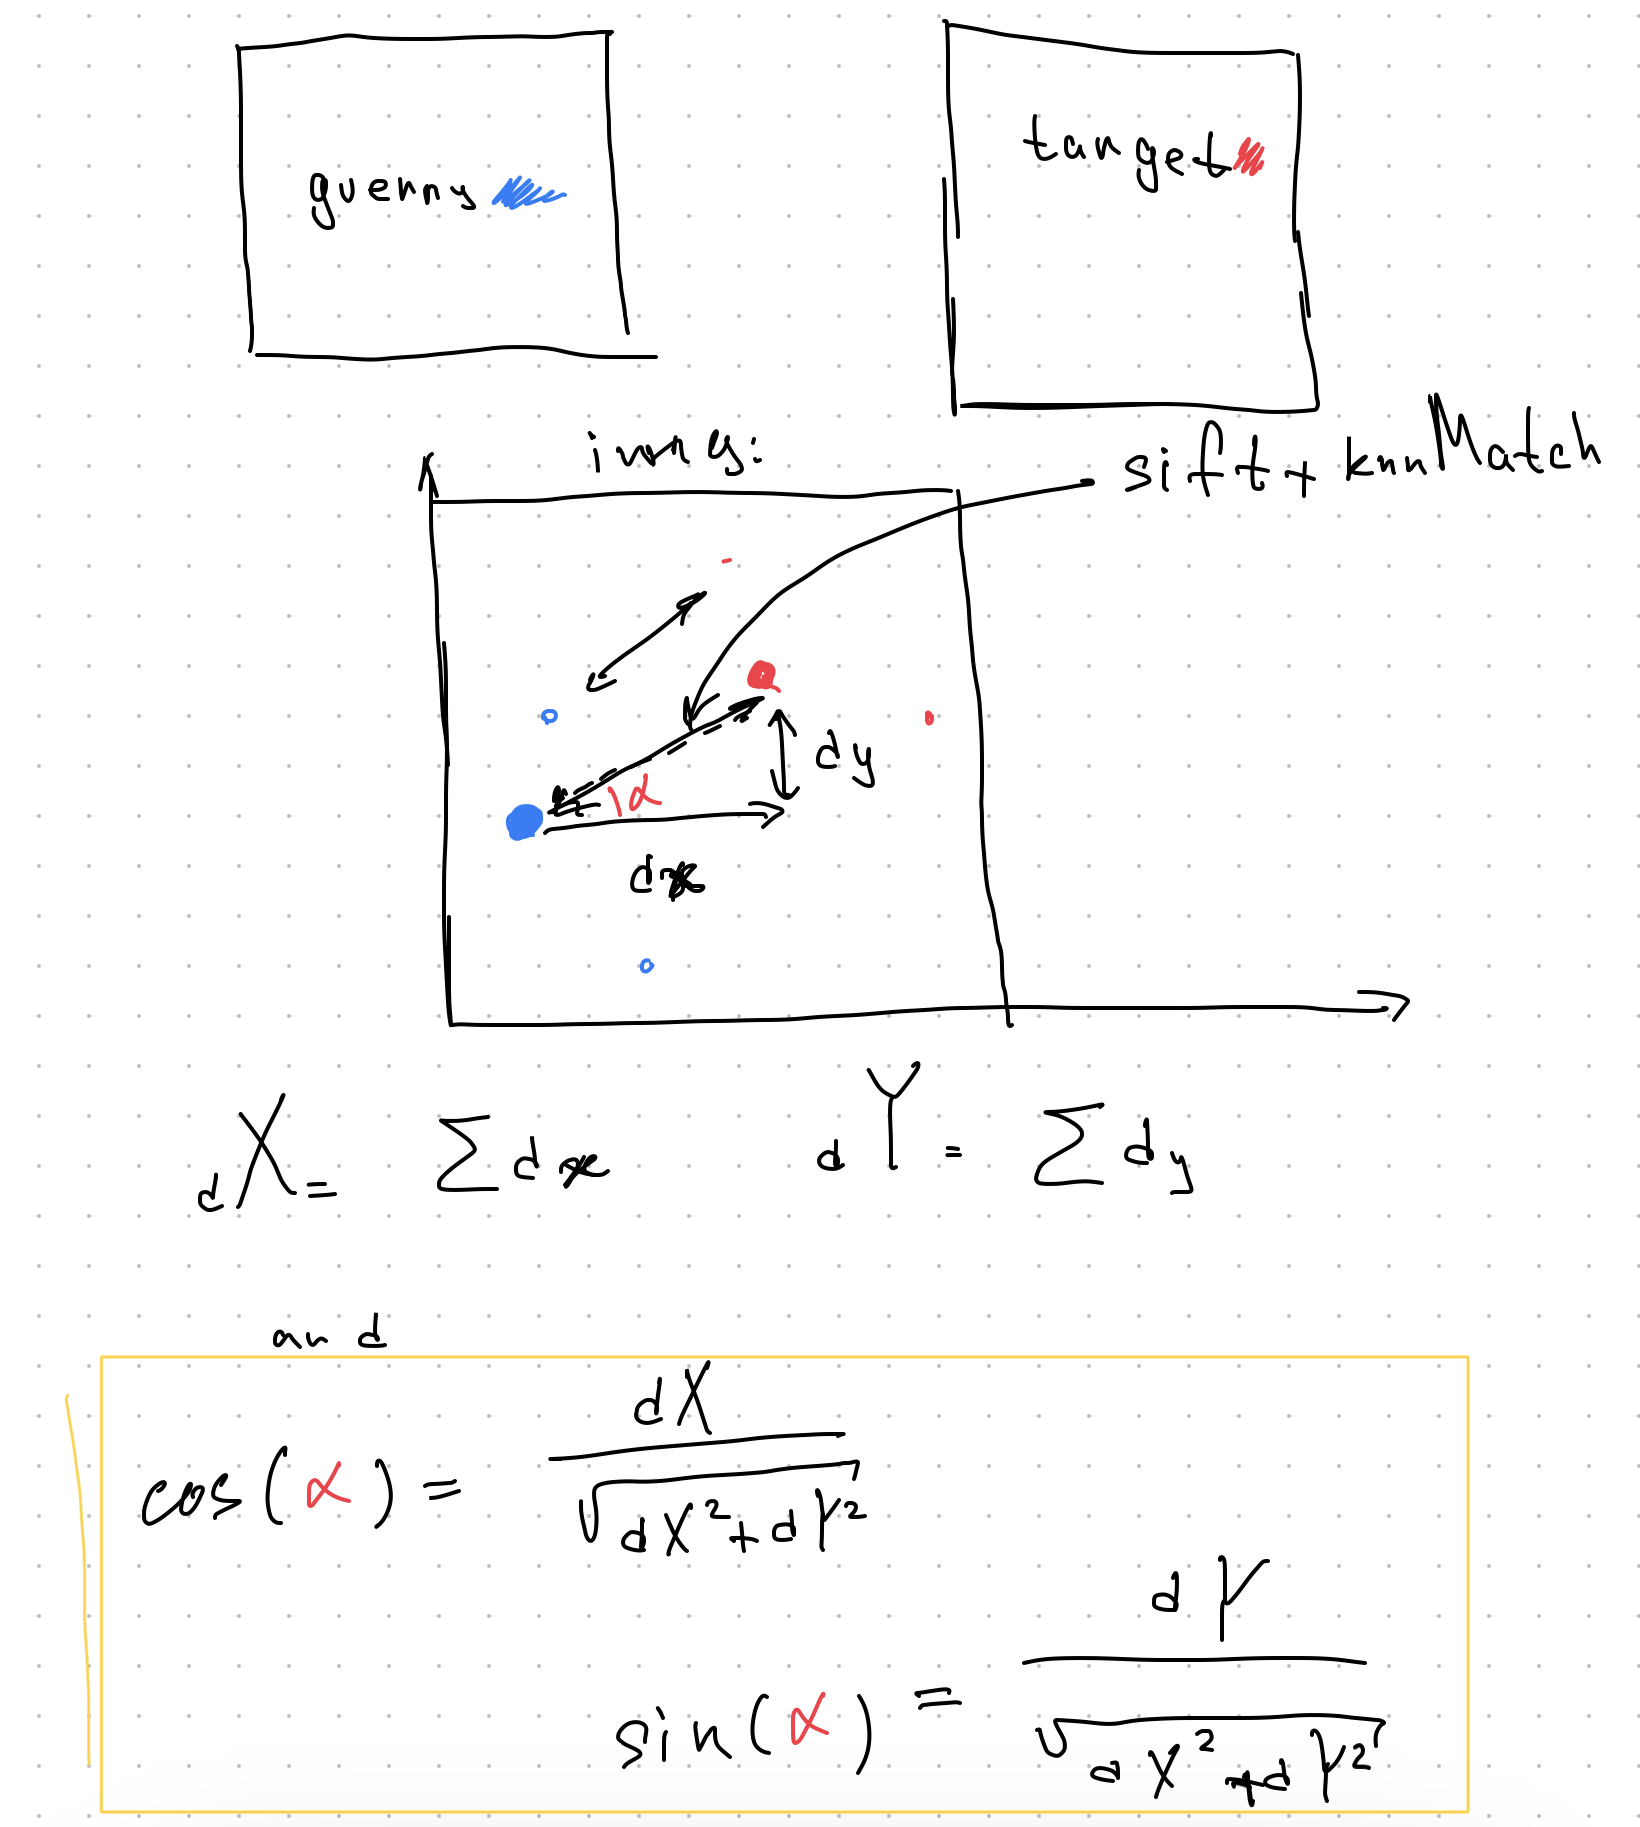 querry
target
img:
sift + knnMatch
α
dy
dx
dX = ∑ dx
dY = ∑ dy
and
cos(α) = dX / √dX²+dY²
sin(α) = dY / √dX²+dY²